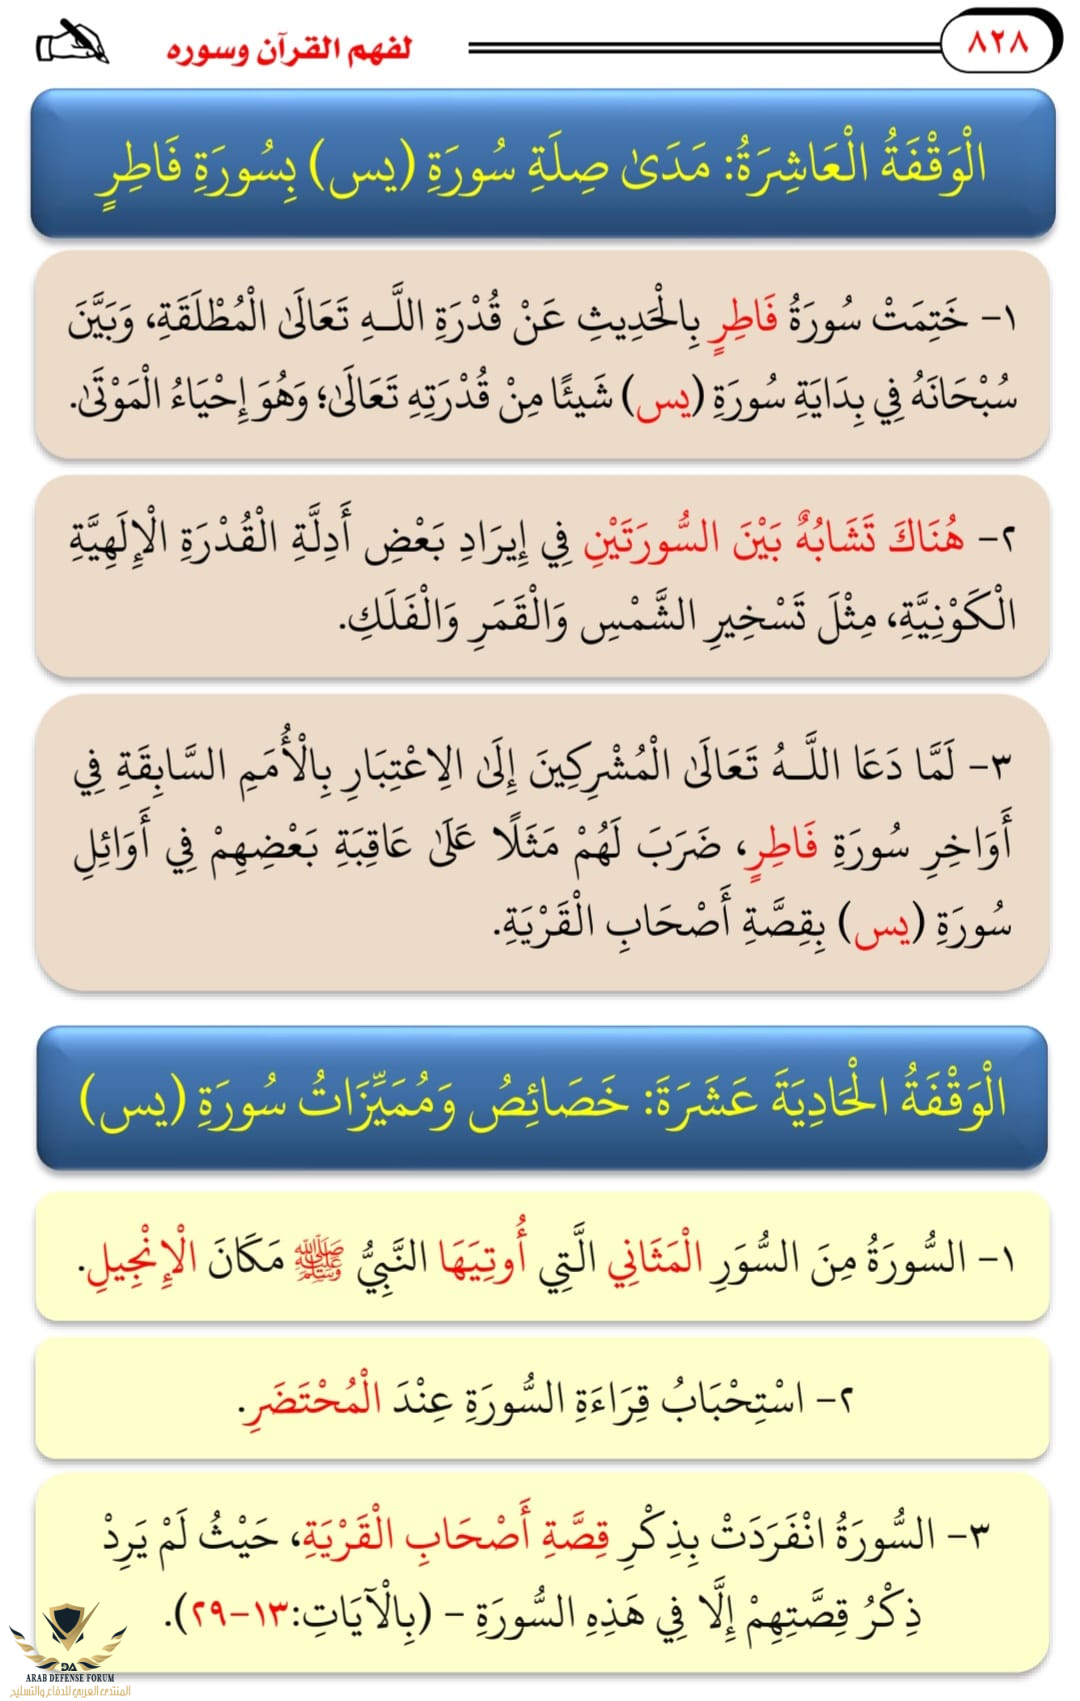 ٨٢٨
لفهم القرآن وسوره
الْوَقْفَةُ الْعَاشِرَةُ: مَدَىٰ صِلَةِ سُورَةِ (يس) بِسُورَةِ فَاطِرٍ
١- خَتِمَتْ سُورَةُ فَاطِرٍ بِالْحَدِيثِ عَنْ قُدْرَةِ اللَّـهِ تَعَالَىٰ الْمُطْلَقَةِ، وَبَيَّنَ
سُبْحَانَهُ فِي بِدَايَةِ سُورَةِ (يس) شَيئًا مِنْ قُدْرَتِهِ تَعَالَىٰ؛ وَهُوَ إِحْيَاءُ الْمَوْتَىٰ.
٢- هُنَاكَ تَشَابُهٌ بَيْنَ السُّورَتَيْنِ فِي إِيرَادِ بَعْضِ أَدِلَّةِ الْقُدْرَةِ الْإِلَهِيَّةِ
الْكَوْنِيَّةِ، مِثْلَ تَسْخِيرِ الشَّمْسِ وَالْقَمَرِ وَالْفَلَكِ.
٣- لَمَّا دَعَا اللَّـهُ تَعَالَىٰ الْمُشْرِكِينَ إِلَىٰ الِاعْتِبَارِ بِالْأُمَمِ السَّابِقَةِ فِي
أَوَاخِرِ سُورَةِ فَاطِرٍ، ضَرَبَ لَهُمْ مَثَلًا عَلَىٰ عَاقِبَةِ بَعْضِهِمْ فِي أَوَائِلِ
سُورَةِ (يس) بِقِصَّةِ أَصْحَابِ الْقَرْيَةِ.
الْوَقْفَةُ الْحَادِيَةَ عَشَرَةَ: خَصَائِصُ وَمُمَيِّزَاتُ سُورَةِ (يس)
١- السُّورَةُ مِنَ السُّوَرِ الْمَثَانِي الَّتِي أُوتِيَهَا النَّبِيُّ ﷺ مَكَانَ الْإِنْجِيلِ.
٢- اسْتِحْبَابُ قِرَاءَةِ السُّورَةِ عِنْدَ الْمُحْتَضَرِ.
٣- السُّورَةُ انْفَرَدَتْ بِذِكْرِ قِصَّةِ أَصْحَابِ الْقَرْيَةِ، حَيْثُ لَمْ يَرِدْ
ذِكْرُ قِصَّتِهِمْ إِلَّا فِي هَذِهِ السُّورَةِ - (بِالْآيَاتِ:١٣-٢٩).
DA
ARAB DEFENSE FORUM
المنتدى العربي للدفاع والتسليح